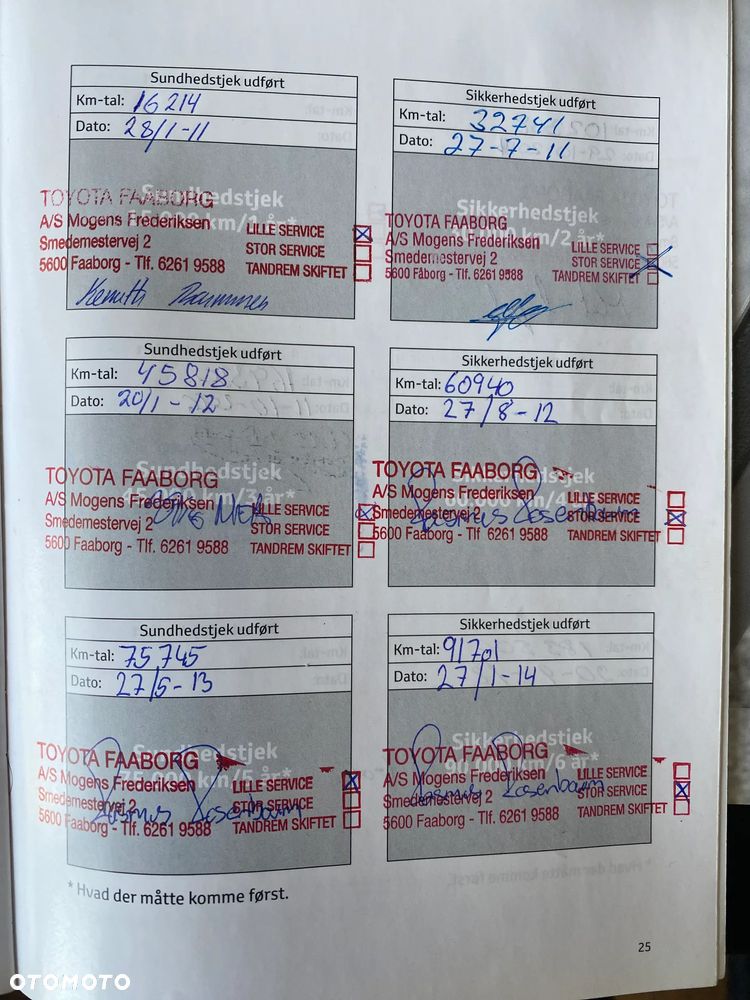 Sundhedstjek udført
Km-tal: 16214
Dato: 28/1-11
Sundhedstjek
000 km/1 år*
TOYOTA FAABORG
A/S Mogens Frederiksen
Smedemestervej 2
5600 Faaborg - Tlf. 6261 9588
LILLE SERVICE
STOR SERVICE
TANDREM SKIFTET
Sikkerhedstjek udført
Km-tal: 32741
Dato: 27-7-11
Sikkerhedstjek
000 km/2 år*
TOYOTA FAABORG
A/S Mogens Frederiksen
Smedemestervej 2
5600 Fåborg - Tlf. 6261 9588
LILLE SERVICE
STOR SERVICE
TANDREM SKIFTET
Sundhedstjek udført
Km-tal: 45818
Dato: 20/1-12
Sundhedstjek
km/3 år*
TOYOTA FAABORG
A/S Mogens Frederiksen
Smedemestervej 2
5600 Faaborg - Tlf. 6261 9588
LILLE SERVICE
STOR SERVICE
TANDREM SKIFTET
Sikkerhedstjek udført
Km-tal: 60940
Dato: 27/8-12
Sikkerhedstjek
TOYOTA FAABORG
A/S Mogens Frederiksen
Smedemestervej 2
5600 Faaborg - Tlf. 6261 9588
LILLE SERVICE
STOR SERVICE
TANDREM SKIFTET
Rasmus Rosenbaum
Sundhedstjek udført
Km-tal: 75745
Dato: 27/5-13
Sundhedstjek
75.000 km/5 år*
TOYOTA FAABORG
A/S Mogens Frederiksen
Smedemestervej 2
5600 Faaborg - Tlf. 6261 9588
LILLE SERVICE
STOR SERVICE
TANDREM SKIFTET
Rasmus Rosenbaum
Sikkerhedstjek udført
Km-tal: 91701
Dato: 27/1-14
Sikkerhedstjek
90.000 km/6 år*
TOYOTA FAABORG
A/S Mogens Frederiksen
Smedemestervej 2
5600 Faaborg - Tlf. 6261 9588
LILLE SERVICE
STOR SERVICE
TANDREM SKIFTET
Rasmus Rosenbaum
* Hvad der måtte komme først.
25
OTOMOTO